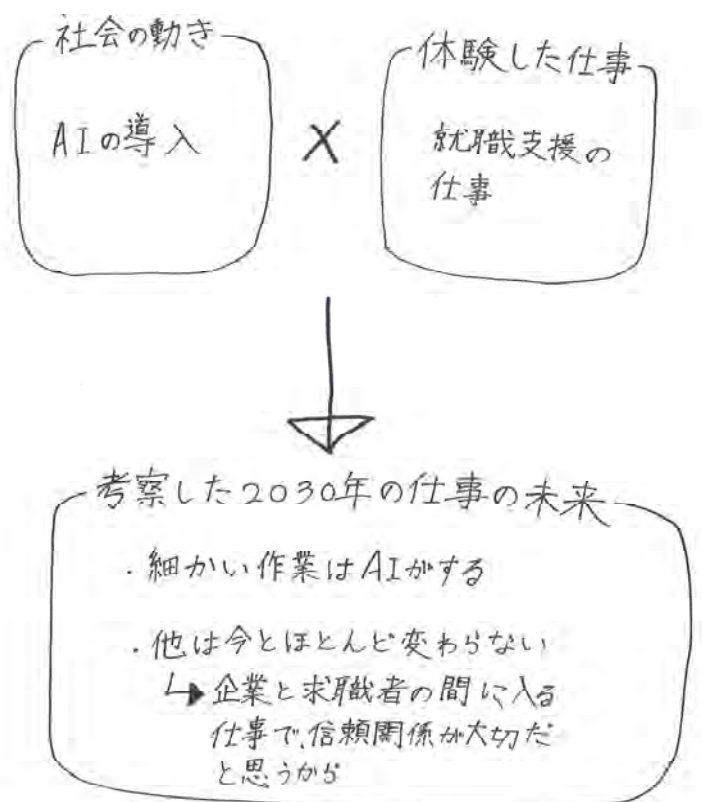 社会の動き
AIの導入
×
体験した仕事
就職支援の
仕事
考察した2030年の仕事の未来
・細かい作業はAIがする
・他は今とほとんど変わらない
↳企業と求職者の間に入る
仕事で、信頼関係が大切だ
と思うから